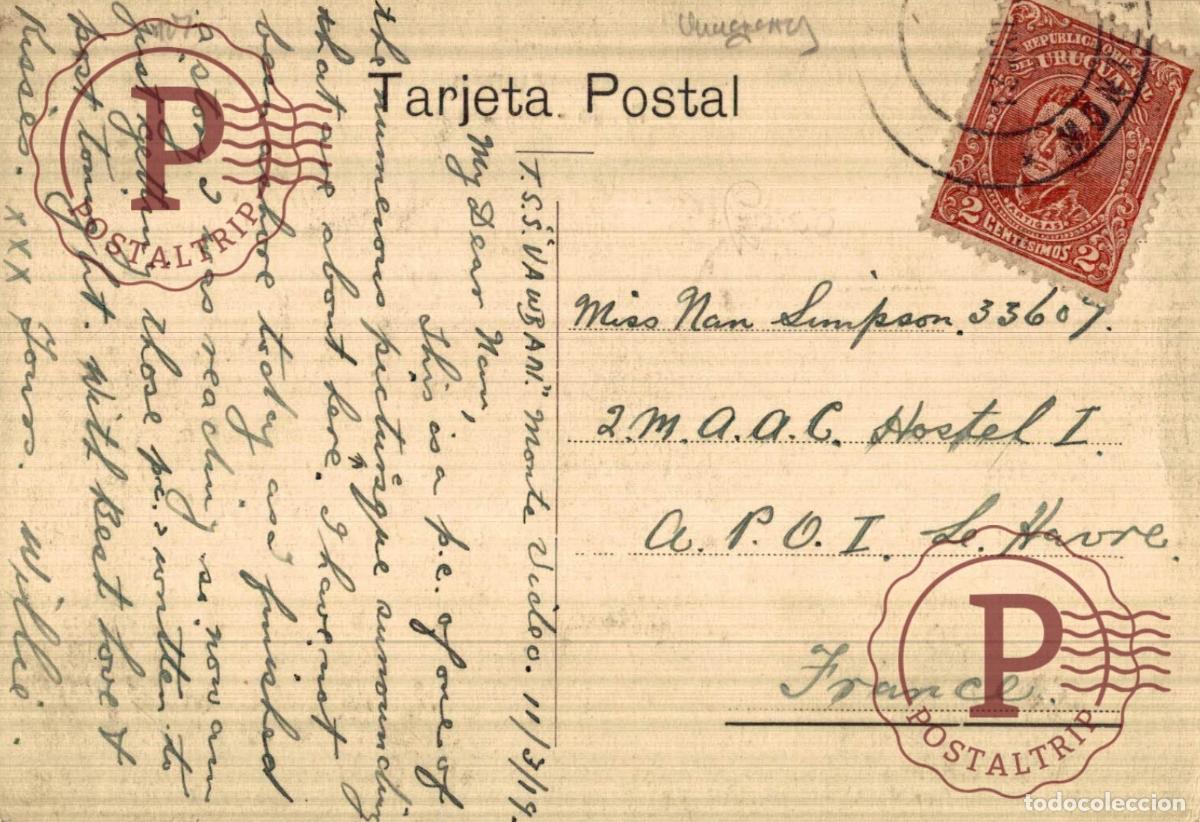 Uruguay
Tarjeta Postal
REPUBLICA ORIENTAL
DEL URUGUAY
ARTIGAS
2 CENTÉSIMOS 2
T.S.S. "VAUBAN." Monte Video. 11/3/19.
My Dear Nan,
This is a p.c. of one of
the numerous picturisque surrounding
that are about here. I have not
been ashore today as I finished
a story I was reading so now am
just getting those p.c.s written to
post tonight. With Best Love &
Kisses. xxx Yours. Willie.
Miss Nan Simpson. 33607.
2.M.A.A.C. Hostel I.
A.P.O.I. Le Havre.
France.
P
POSTALTRIP
P
POSTALTRIP
todocoleccion